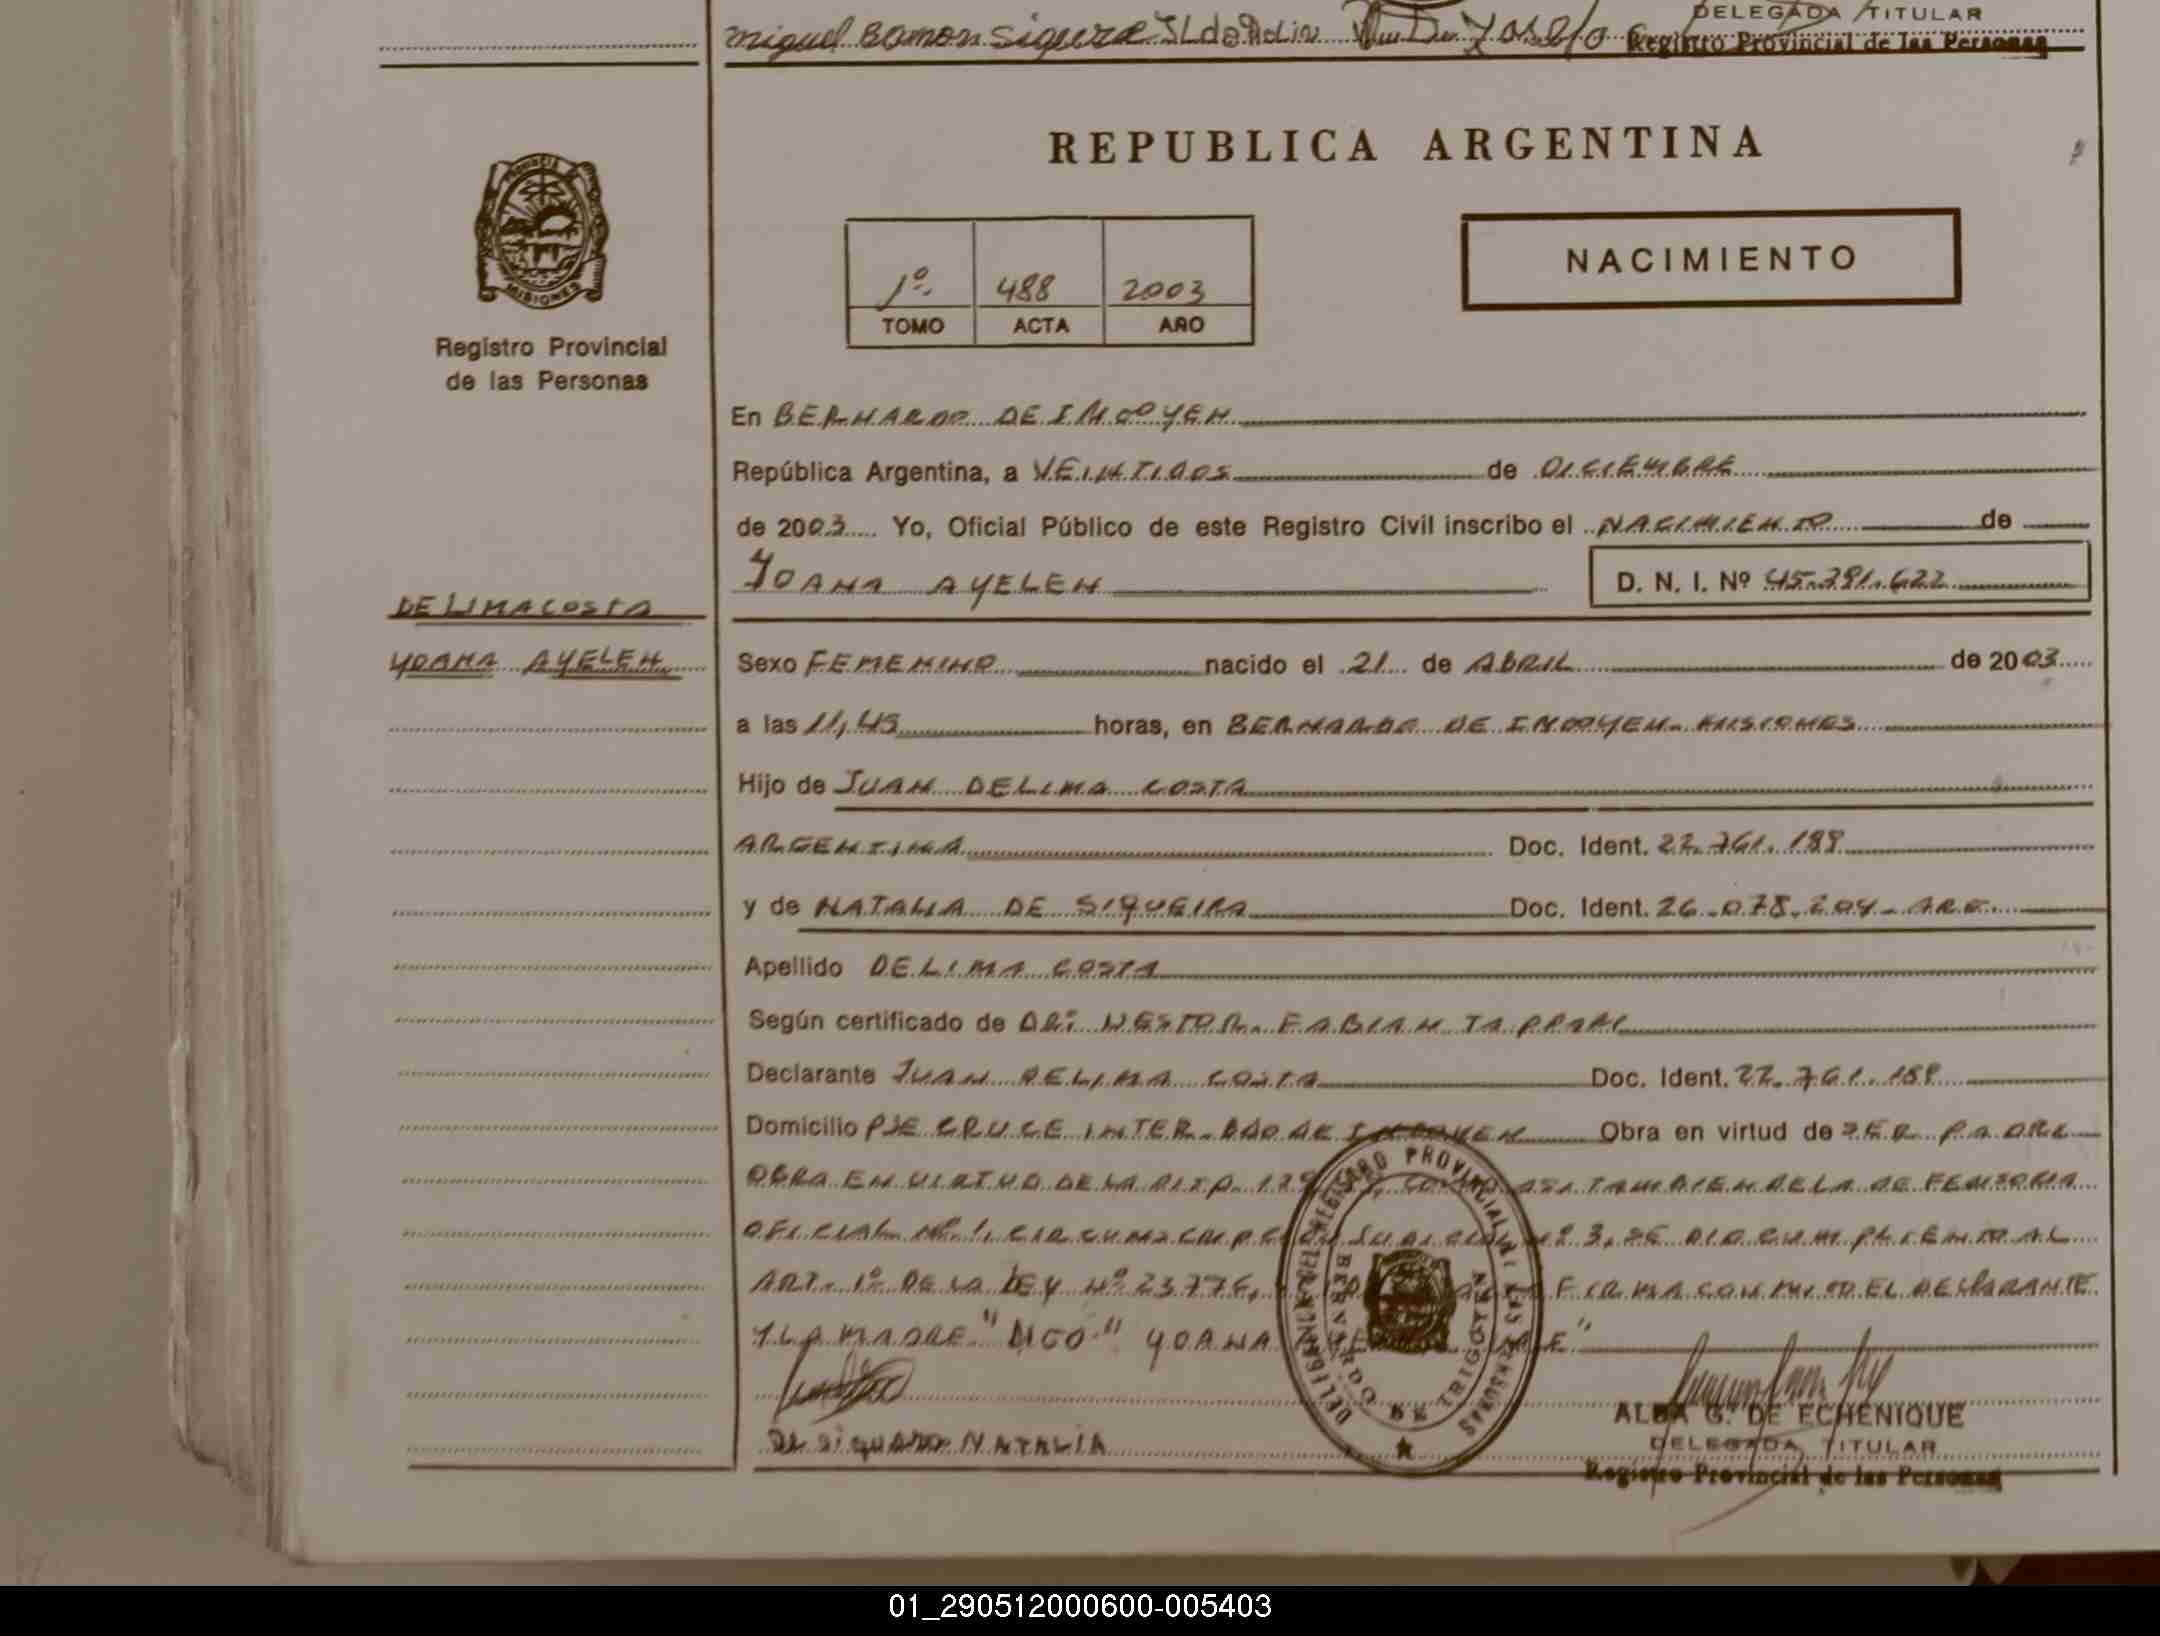 Miguel Ramon Siquera
DELEGADA TITULAR
Registro Provincial de las Personas
REPUBLICA ARGENTINA
PROVINCIA DE
MISIONES
1º 488 2003
TOMO ACTA AÑO
NACIMIENTO
Registro Provincial
de las Personas
En BERNARDO DE IRIGOYEN
República Argentina, a VEINTIDOS de DICIEMBRE
de 2003 Yo, Oficial Público de este Registro Civil inscribo el NACIMIENTO de
YOANA AYELEN D. N. I. Nº 45.391.622
DELIMA COSTA
YOANA AYELEN
Sexo FEMENINO nacido el 21 de ABRIL de 2003
a las 11,45 horas, en BERNARDO DE IRIGOYEN - MISIONES
Hijo de JUAN DELIMA COSTA
ARGENTINA Doc. Ident. 22.761.189
y de NATALIA DE SIQUEIRA Doc. Ident. 26.078.204 - ARG.
Apellido DELIMA COSTA
Según certificado de DR: NESTOR FABIAN
Declarante JUAN DELIMA COSTA Doc. Ident. 22.761.189
Domicilio PJE CRUCE INTER - BDO DE IRIGOYEN Obra en virtud de SER PADRE
OBRA EN VIRTUD DE LA DISP. COMO ASI TAMBIEN DE LA DEFENSORIA
OFICIAL Nº 1, CIRCUNSCRIPCION JUDICIAL Nº 3, SE DIO CUMPLIENTO AL
ART. 1º DE LA LEY Nº 23.776, FIRMA CONMIGO EL DECLARANTE
Y LA MADRE "DIGO" YOANA VALE"
DELEGACION DEL REGISTRO PROVINCIAL DE LAS PERSONAS
BERNARDO DE IRIGOYEN
NATALIA
ALBA G. DE ECHENIQUE
DELEGADA TITULAR
Registro Provincial de las Personas
01_290512000600-005403